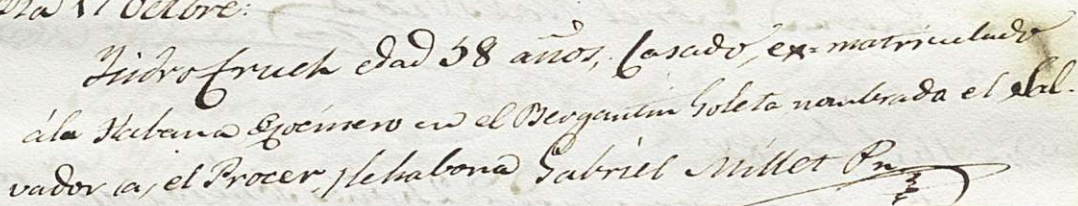 Dia 17 Octbre:
Isidro Cruch edad 58 años, Casado, ex-matriculado
ála Habana en el Bergantin Goleta nombrada el Sal-
vador (a, el Procer, Gabriel Millet Pr